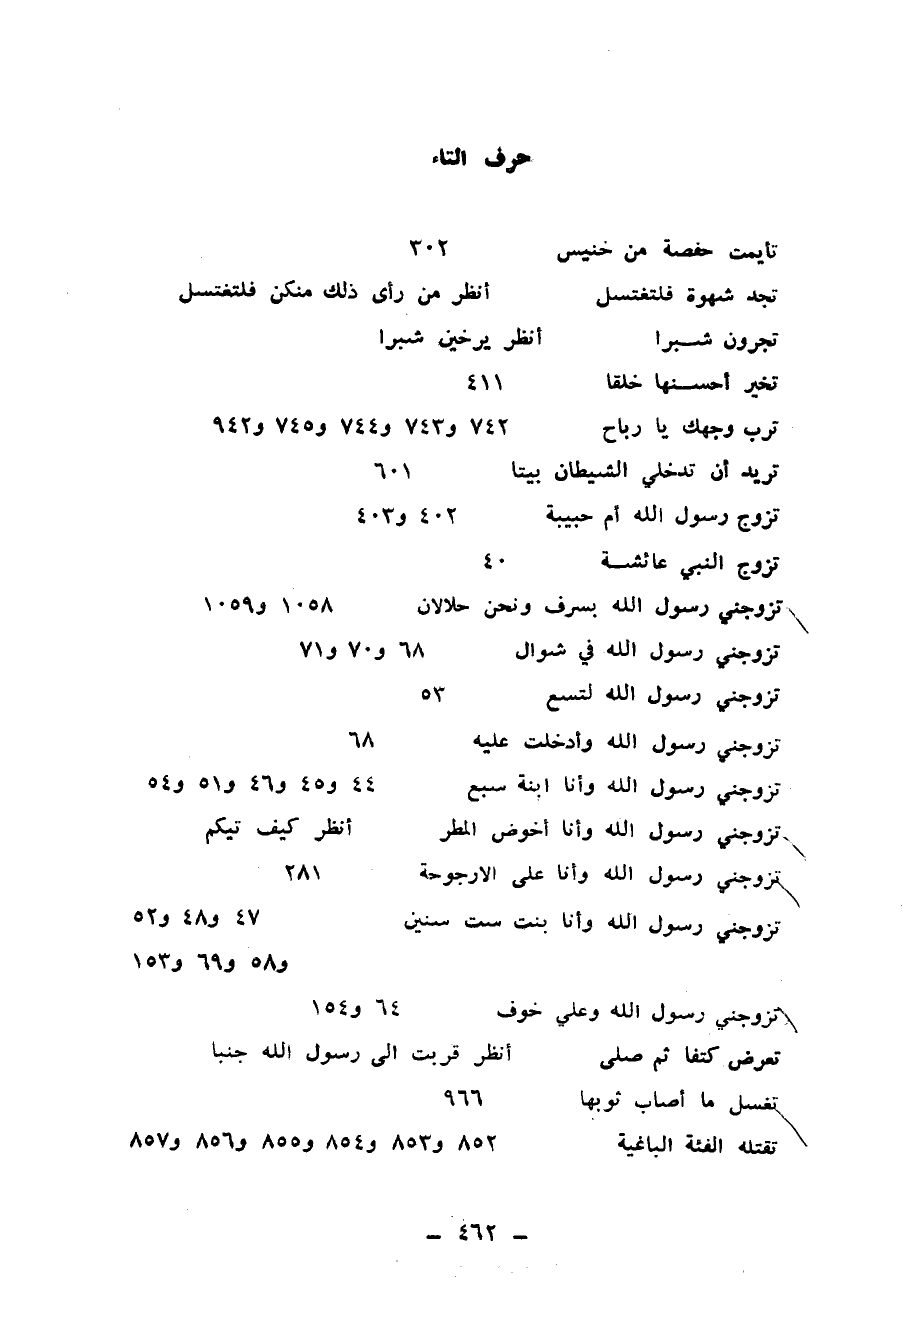 حرف التاء
تأيمت حفصة من خنيس ٣٠٢
تجد شهوة فلتغتسل أنظر من رأى ذلك منكن فلتغتسل
تجرون شبرا أنظر يرخين شبرا
تخير أحسنها خلقا ٤١١
ترب وجهك يا رباح ٧٤٢ و٧٤٣ و٧٤٤ و٧٤٥ و٩٤٢
تريد أن تدخلي الشيطان بيتا ٦٠١
تزوج رسول الله أم حبيبة ٤٠٢ و٤٠٣
تزوج النبي عائشة ٤٠
تزوجني رسول الله بسرف ونحن حلالان ١٠٥٨ و١٠٥٩
تزوجني رسول الله في شوال ٦٨ و٧٠ و٧١
تزوجني رسول الله لتسع ٥٣
تزوجني رسول الله وأدخلت عليه ٦٨
تزوجني رسول الله وأنا ابنة سبع ٤٤ و٤٥ و٤٦ و٥١ و٥٤
تزوجني رسول الله وأنا أخوض المطر أنظر كيف تيكم
تزوجني رسول الله وأنا على الارجوحة ٢٨١
تزوجني رسول الله وأنا بنت ست سنين ٤٧ و٤٨ و٥٢
و٥٨ و٦٩ و١٥٣
تزوجني رسول الله وعلي خوف ٦٤ و١٥٤
تعرض كتفا ثم صلى أنظر قربت الى رسول الله جنبا
تغسل ما أصاب ثوبها ٩٦٦
تقتله الفئة الباغية ٨٥٢ و٨٥٣ و٨٥٤ و٨٥٥ و٨٥٦ و٨٥٧
– ٤٦٢ –